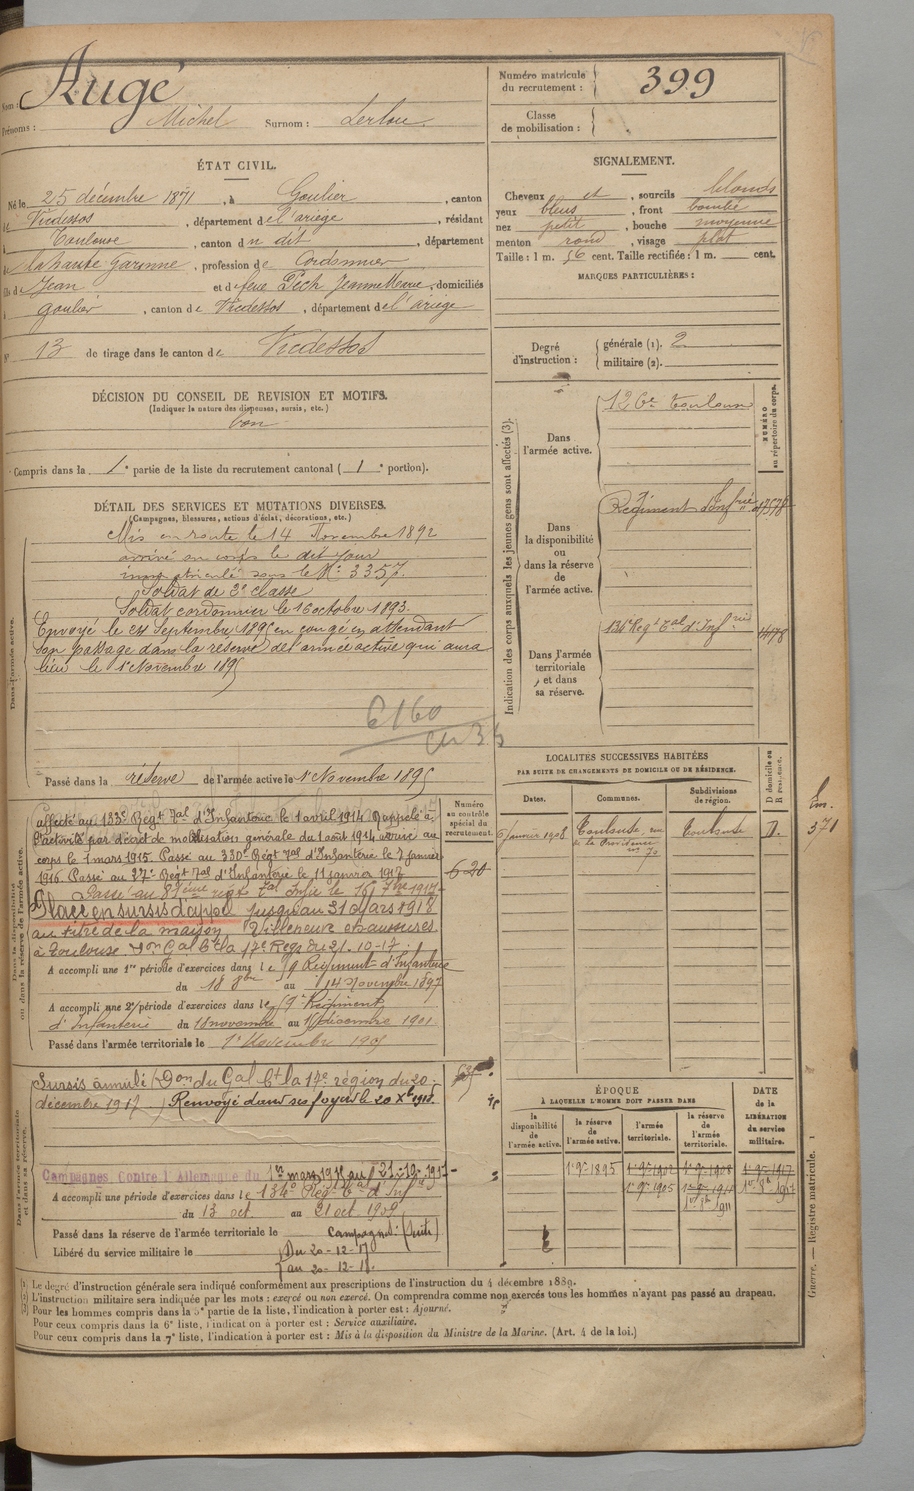 Nom : Augé
Prénoms : Michel Surnom :
Numéro matricule du recrutement : 399
Classe de mobilisation :
ÉTAT CIVIL.
Né le 25 décembre 1871, à Goulier, canton
de Vicdessos, département de l'ariège, résidant
à Toulouse, canton du dit, département
de la haute Garonne, profession de Cordonnier
fils de Jean et de feue Pech Jeanne Marie, domiciliés
à Goulier, canton de Vicdessos, département de l'ariège
N° 13 de tirage dans le canton de Vicdessos
SIGNALEMENT.
Cheveux et, sourcils blonds
yeux bleus, front bombé
nez petit, bouche moyenne
menton rond, visage plat
Taille : 1 m. 56 cent. Taille rectifiée : 1 m. cent.
MARQUES PARTICULIÈRES :
Degré d'instruction : générale (1). 2
militaire (2).
DÉCISION DU CONSEIL DE REVISION ET MOTIFS.
(Indiquer la nature des dispenses, sursis, etc.)
bon
Compris dans la 1e partie de la liste du recrutement cantonal (1e portion).
DÉTAIL DES SERVICES ET MUTATIONS DIVERSES.
(Campagnes, blessures, actions d'éclat, décorations, etc.)
Dans l'armée active.
Mis en route le 14 Novembre 1892
arrivé au corps le dit jour
immatriculé sous le N° 3357.
Soldat de 2e classe
Soldat cordonnier le 16 octobre 1893.
Envoyé le 24 Septembre 1895 en congé en attendant
son passage dans la réserve de l'armée active qui aura
lieu le 1er Novembre 1895
6160
Passé dans la réserve de l'armée active le 1er Novembre 1895
Indication des corps auxquels les jeunes gens sont affectés (3).
NUMÉRO au répertoire du corps.
Dans l'armée active.
126e Toulouse
Dans la disponibilité ou dans la réserve de l'armée active.
Régiment d'Infrie
Dans l'armée territoriale et dans sa réserve.
134e Regt Tal d'Infrie
LOCALITÉS SUCCESSIVES HABITÉES
PAR SUITE DE CHANGEMENTS DE DOMICILE OU DE RÉSIDENCE.
Dates. Communes. Subdivisions de région. D domicile ou R résidence.
6 janvier 1908 Toulouse, rue de la Providence Toulouse D.
Em. 371
Dans la disponibilité ou dans la réserve de l'armée active.
Numéro au contrôle spécial du recrutement.
affecté au 133e Regt Tal d'Infanterie le 1 avril 1914 Rappelé à
l'activité par décret de mobilisation générale du 1 août 1914 arrivé au
corps le 1 mars 1915. Passé au 330e Régt Tal d'Infanterie le 7 janvier
1916. Passé au 37e Régt Tal d'Infanterie le 11 janvier 1917
Placé en sursis d'appel jusqu'au 31 Mars 1918
au titre de la maison Villeneuve chaussures
à Toulouse. Don Gal Ct la 17e Reg. du 21.10-17.
6-20
A accompli une 1re période d'exercices dans le 9e Régiment d'Infanterie
du 18 8bre au 14 Novembre 1897
A accompli une 2e période d'exercices dans le 9e Régiment
d'Infanterie du 18 novembre au 15 décembre 1901
Passé dans l'armée territoriale le 1er Novembre 1905
Dans l'armée territoriale et dans sa réserve.
Sursis annulé (Don du Gal Ct la 17e région du 20
décembre 1917) Renvoyé dans ses foyers le 20 Xbre 1918.
Campagnes Contre l'Allemagne du 1er mars 1915 au 21-10-1917
A accompli une période d'exercices dans le 134e Reg. Tal d'Infrie
du 13 oct. au 21 oct. 1909
Passé dans la réserve de l'armée territoriale le Campagnes : (suite)
Libéré du service militaire le Du 20-12-17
au 20-12-18.
ÉPOQUE
À LAQUELLE L'HOMME DOIT PASSER DANS
DATE de la LIBÉRATION du service militaire.
la disponibilité de l'armée active. la réserve de l'armée active. l'armée territoriale. la réserve de l'armée territoriale.
1er 9bre 1895 1er 9bre 1902 1er 9bre 1908 1er 9bre 1917
1er 9bre 1905 1er 9bre 1911 1er 8bre 1917
1er 8bre 1911
(1) Le degré d'instruction générale sera indiqué conformément aux prescriptions de l'instruction du 4 décembre 1889.
(2) L'instruction militaire sera indiquée par les mots : exercé ou non exercé. On comprendra comme non exercés tous les hommes n'ayant pas passé au drapeau.
(3) Pour les hommes compris dans la 5e partie de la liste, l'indication à porter est : Ajourné.
Pour ceux compris dans la 6e liste, l'indication à porter est : Service auxiliaire.
Pour ceux compris dans la 7e liste, l'indication à porter est : Mis à la disposition du Ministre de la Marine. (Art. 4 de la loi.)
Guerre. — Registre matricule. 1